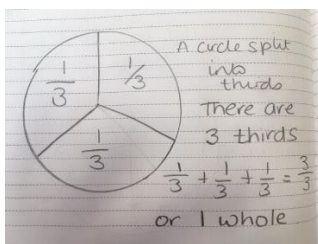 1/3
1/3
1/3
A circle split
into
thirds
There are
3 thirds
1/3 + 1/3 + 1/3 = 3/3
or 1 whole